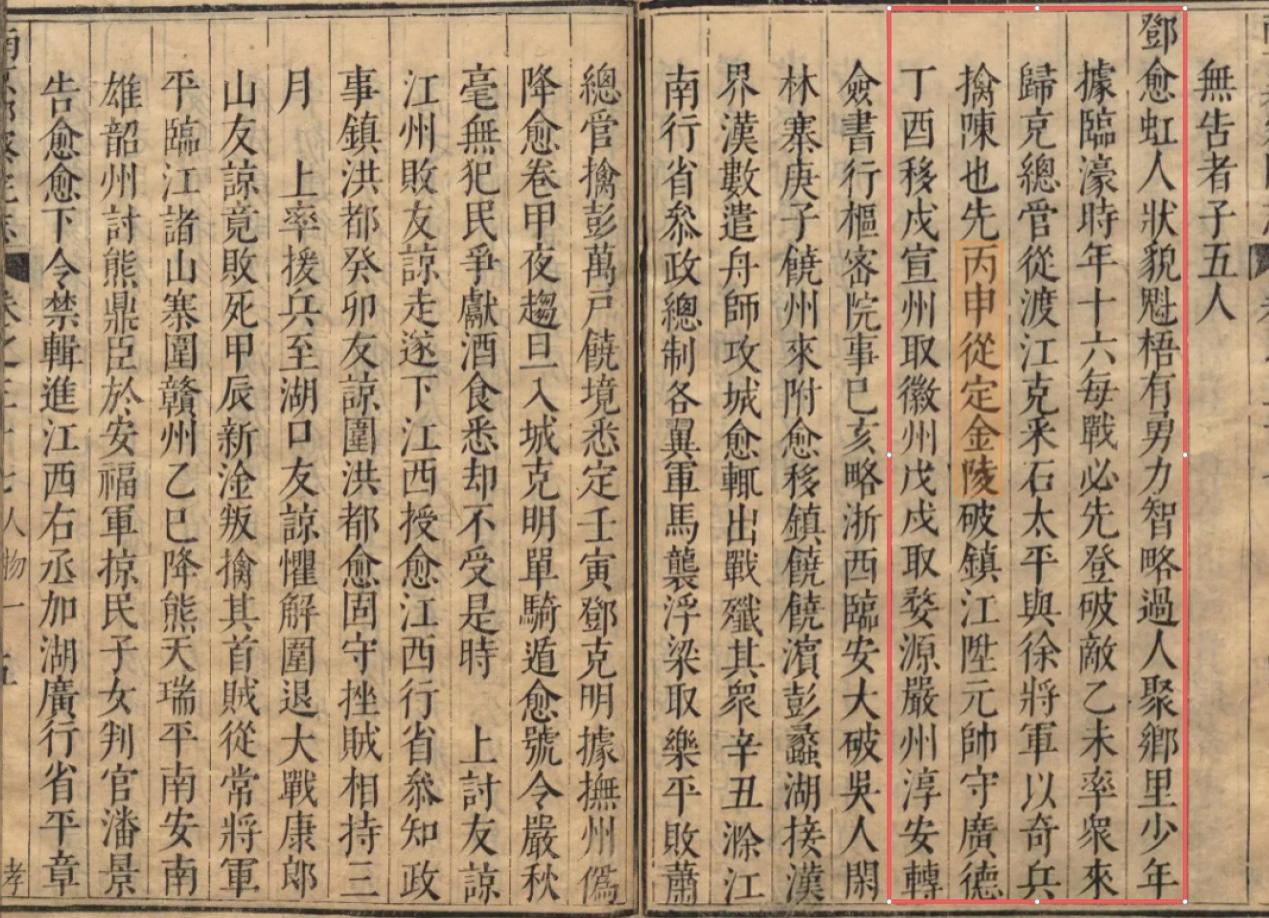 無告者子五人
鄧愈虹人狀貌魁梧有勇力智略過人聚鄉里少年
據臨濠時年十六每戰必先登破敵乙未率衆來
歸充總管從渡江克采石太平與徐將軍以奇兵
擒陳也先丙申從定金陵破鎮江陞元帥守廣德
丁酉移戍宣州取徽州戊戌取婺源嚴州淳安轉
僉書行樞密院事已亥略浙西臨安大破吳人閑
林寨庚子饒州來附愈移鎮饒饒濱彭蠡湖接漢
界漢數遣舟師攻城愈輒出戰殲其衆辛丑滁江
南行省叅政總制各翼軍馬襲浮梁取樂平敗蕭
總管擒彭萬戶饒境悉定壬寅鄧克明據撫州僞
降愈卷甲夜趨旦入城克明單騎遁愈號令嚴秋
毫無犯民爭獻酒食悉却不受是時 上討友諒
江州敗友諒走遂下江西授愈江西行省叅知政
事鎮洪都癸卯友諒圍洪都愈固守挫賊相持三
月 上率援兵至湖口友諒懼解圍退大戰康郎
山友諒竟敗死甲辰新淦叛擒其首賊從常將軍
平臨江諸山寨圍贛州乙巳降熊天瑞平南安南
雄韶州討熊鼎臣於安福軍掠民子女判官潘景
告愈愈下令禁輯進江西右丞加湖廣行省平章
卷之三十七人物一 五 孝